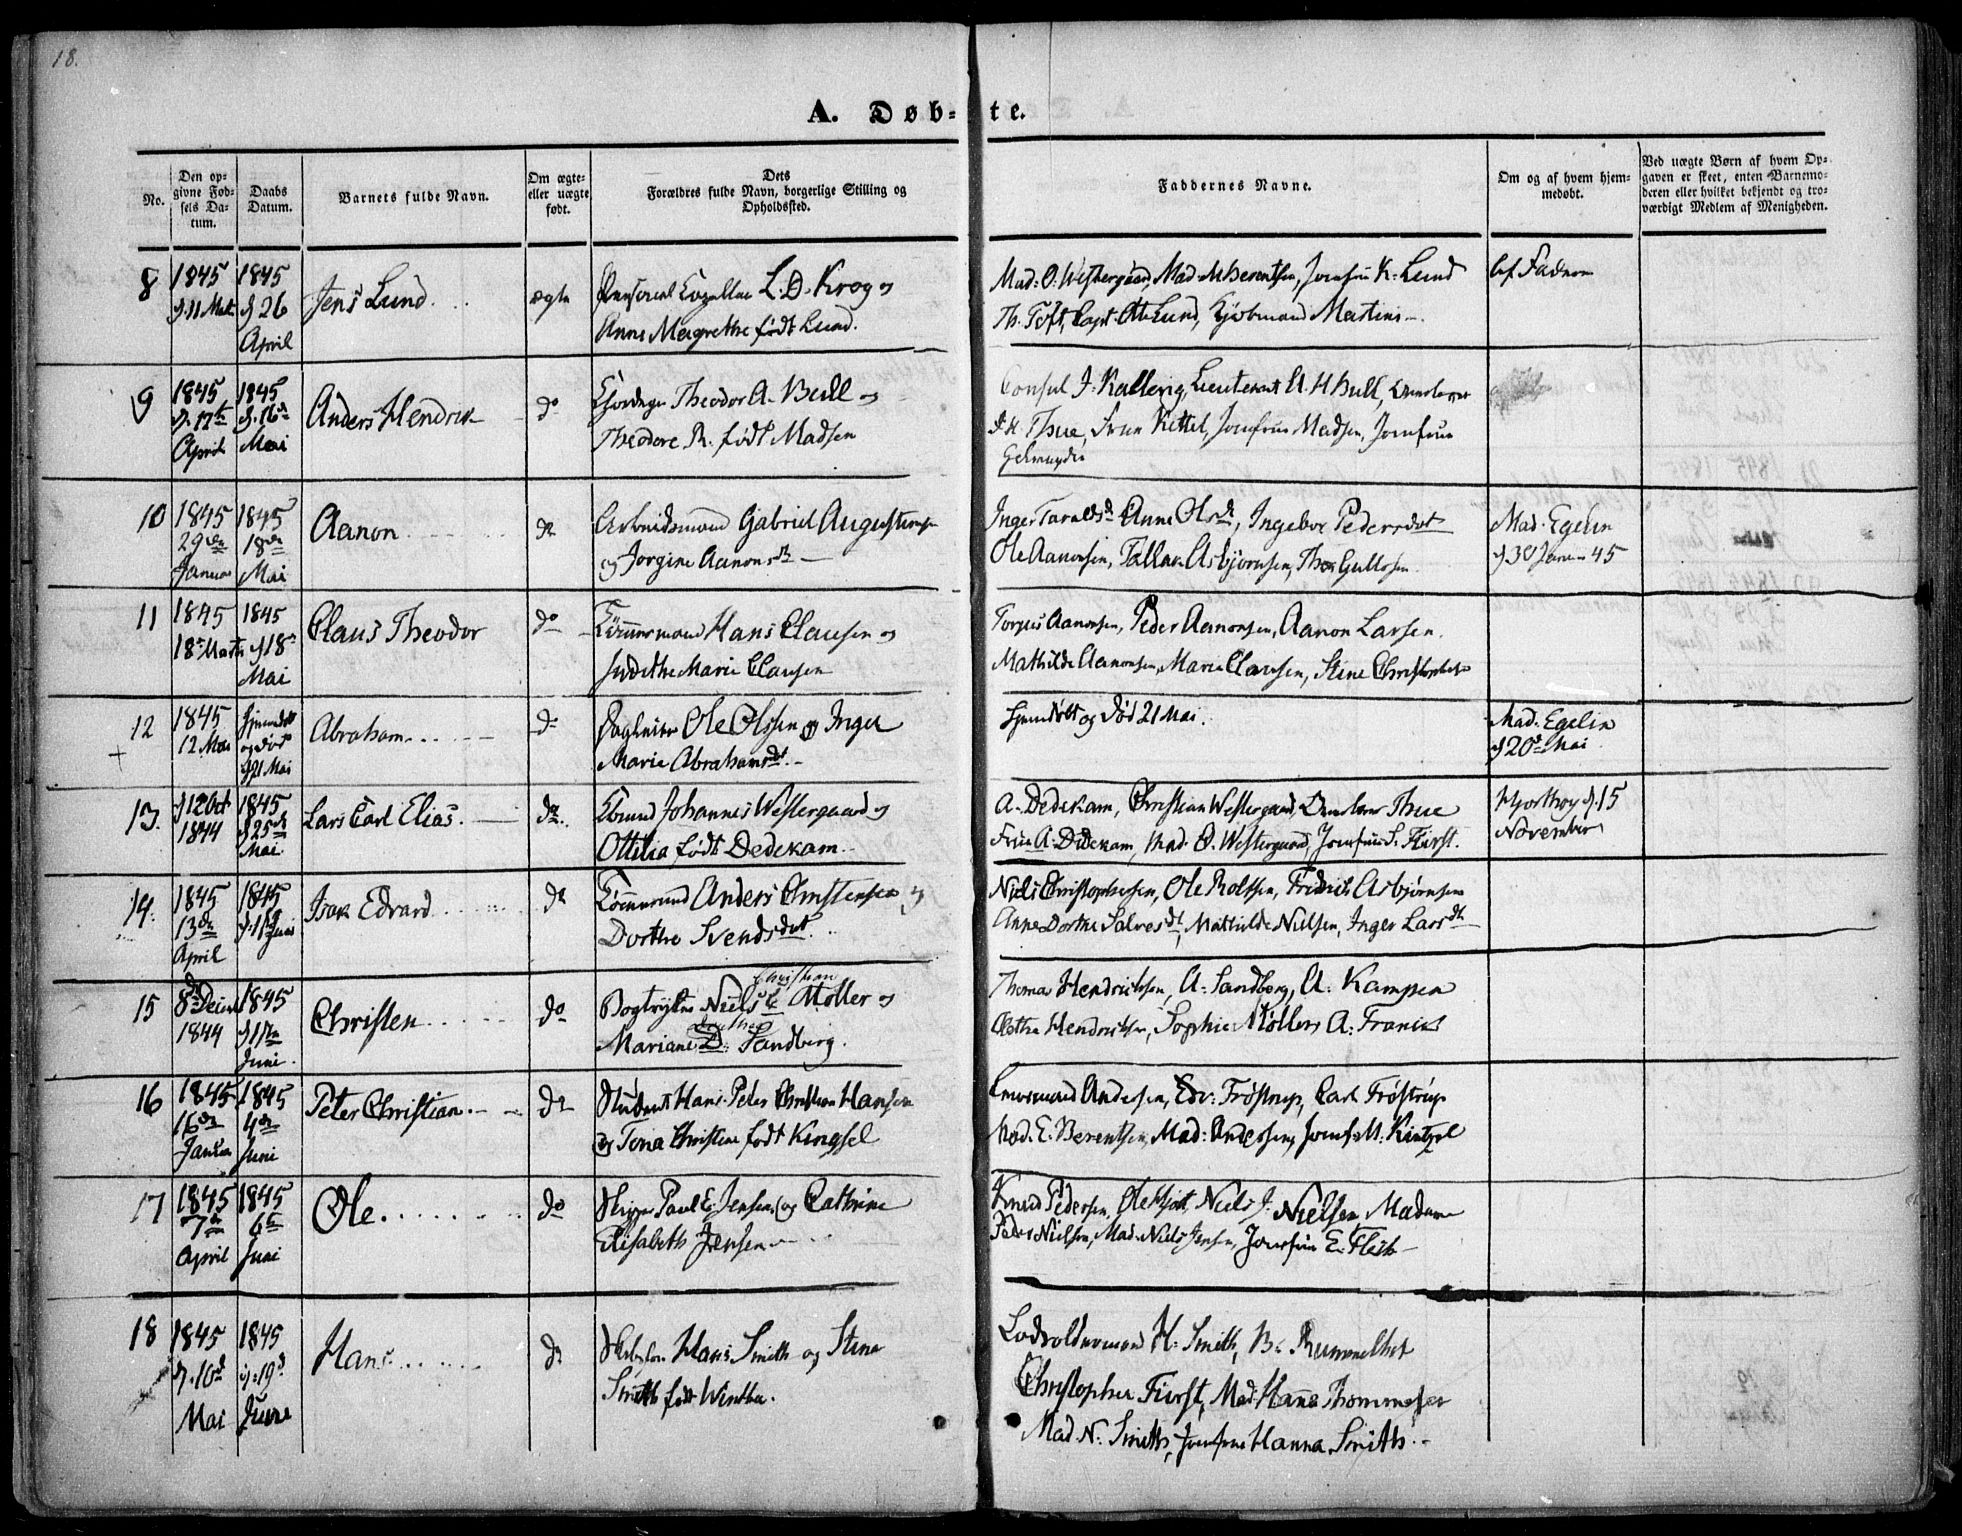 18.
A. Døb-te.
No.
Den op-
givne Fød-
sels Da-
tum.
Daabs
Datum.
Barnets fulde Navn.
Om ægte-
eller uægte
født.
Dets
Forældres fulde Navn, borgerlige Stilling og
Opholdssted.
Faddernes Navne.
Om og af hvem hjem-
medøbt.
Ved uægte Børn af hvem Op-
gaven er skeet, enten Barnemo-
deren eller hvilket bekjendt og tro-
værdigt Medlem af Menigheden.
8 1845 1845
d. 11 d 26
April
Jens Lund
ægte
Personel Capellan L. D. Krog og
Anne Magrethe født Lund.
Mad. O. Westergaard, Mad. M Berentsen, Jomfru K. Lund
Th. Toft, Capt. Otto Lund, Kjøbmand Martini
af Faderen
9 1845 1845
d. 17te d. 16de
April Mai
Anders Hendrik
do
Theodor A. Bull og
Theodore R. født Madsen
Consul J. Kallevig, Lieutenant A. H Bull,
Thue, Frue Kittel, Jomfrue Madsen, Jomfrue
10 1845 1845
29de 18de
Januar Mai
Aanon
do
Arbeidsmand Gabriel
og Jorgine Aanonsdt
Inger Taraldsdt Anne Olsdt, Ingebor Pedersdot
Ole Aanonsen, Tallak Asbjørnsen,
Mad. Egelin
d 30 Januar 45
11 1845 1845
18de Marts d 18de
Mai
Claus Theodor
do
Tømmermand Hans Clausen og
Judithe Marie Clausen
Torjus Aanonsen, Peder Aanonsen, Aanon Larsen.
Mathilde Aanonsen, Marie Clausen, Stine
12 1845
12 Mai
og død
d 21 Mai
Abraham
do
Ole Olssen og Inger
Marie Abrahamsdt.
Hjemdøbt og død 21 Mai.
Mad. Egelin
d 20de Mai
13. d 12 Oct 1845
1844 d 25de
Mai
Lars Carl Elias.
do
Johannes Westergaard og
Ottilia født Dedekam
A. Dedekam, Christian Westergaard, Thue
Frue A. Dedekam, Mad. O. Westergaard, Jomfrue S. Fürst.
Hjorthøy d. 15
November
14. 1845 1845
13de
April
Isak Edvard
do
Anders Christensen og
Dorthe Svendsdot.
Niels Christophersen, Ole Rolfsen, Fredrik Asbjørnsen
Anne Dorthe Salvesdt, Mathilde Nielsen, Inger Larsdt
15 8de 1845
1844
Juni
Christen
do
Christian
Bogtrykker Niels C Møller og
Mariane D. Sandberg.
Thomas Hendrichsen, A. Sandberg, A. Kampen
Hendrichsen, Sophie Møller, A. Francis
16 1845 1845
16de 4de
Januar Juni
Peter Christian
do
Student Hans Peter Christian Hansen
og Tena Christine født
Andersen, Edv. Frøstrup, Carl Frøstrup
Mad. E. Berentsen, Mad. Andersen, Jomf. M.
17 1845 1845
7de 6te
April Juni
Ole
do
Skipper Paul E. Jensen og Cathrine
Elisabeth Jensen
Knud Pedersen, Ole Niels J. Nielsen Madame
Peder Nielsen, Mad. Niels Jensen, Jomfrue E.
18 1845 1845
d. 10de d. 19de
Mai June
Hans
do
Hans Smith og Stine
Smith født Winther.
H. Smith, B.
Christopher Fürst, Mad. Hanna Thommesen
Mad. N. Smith, Jomfrue Hanna Smith